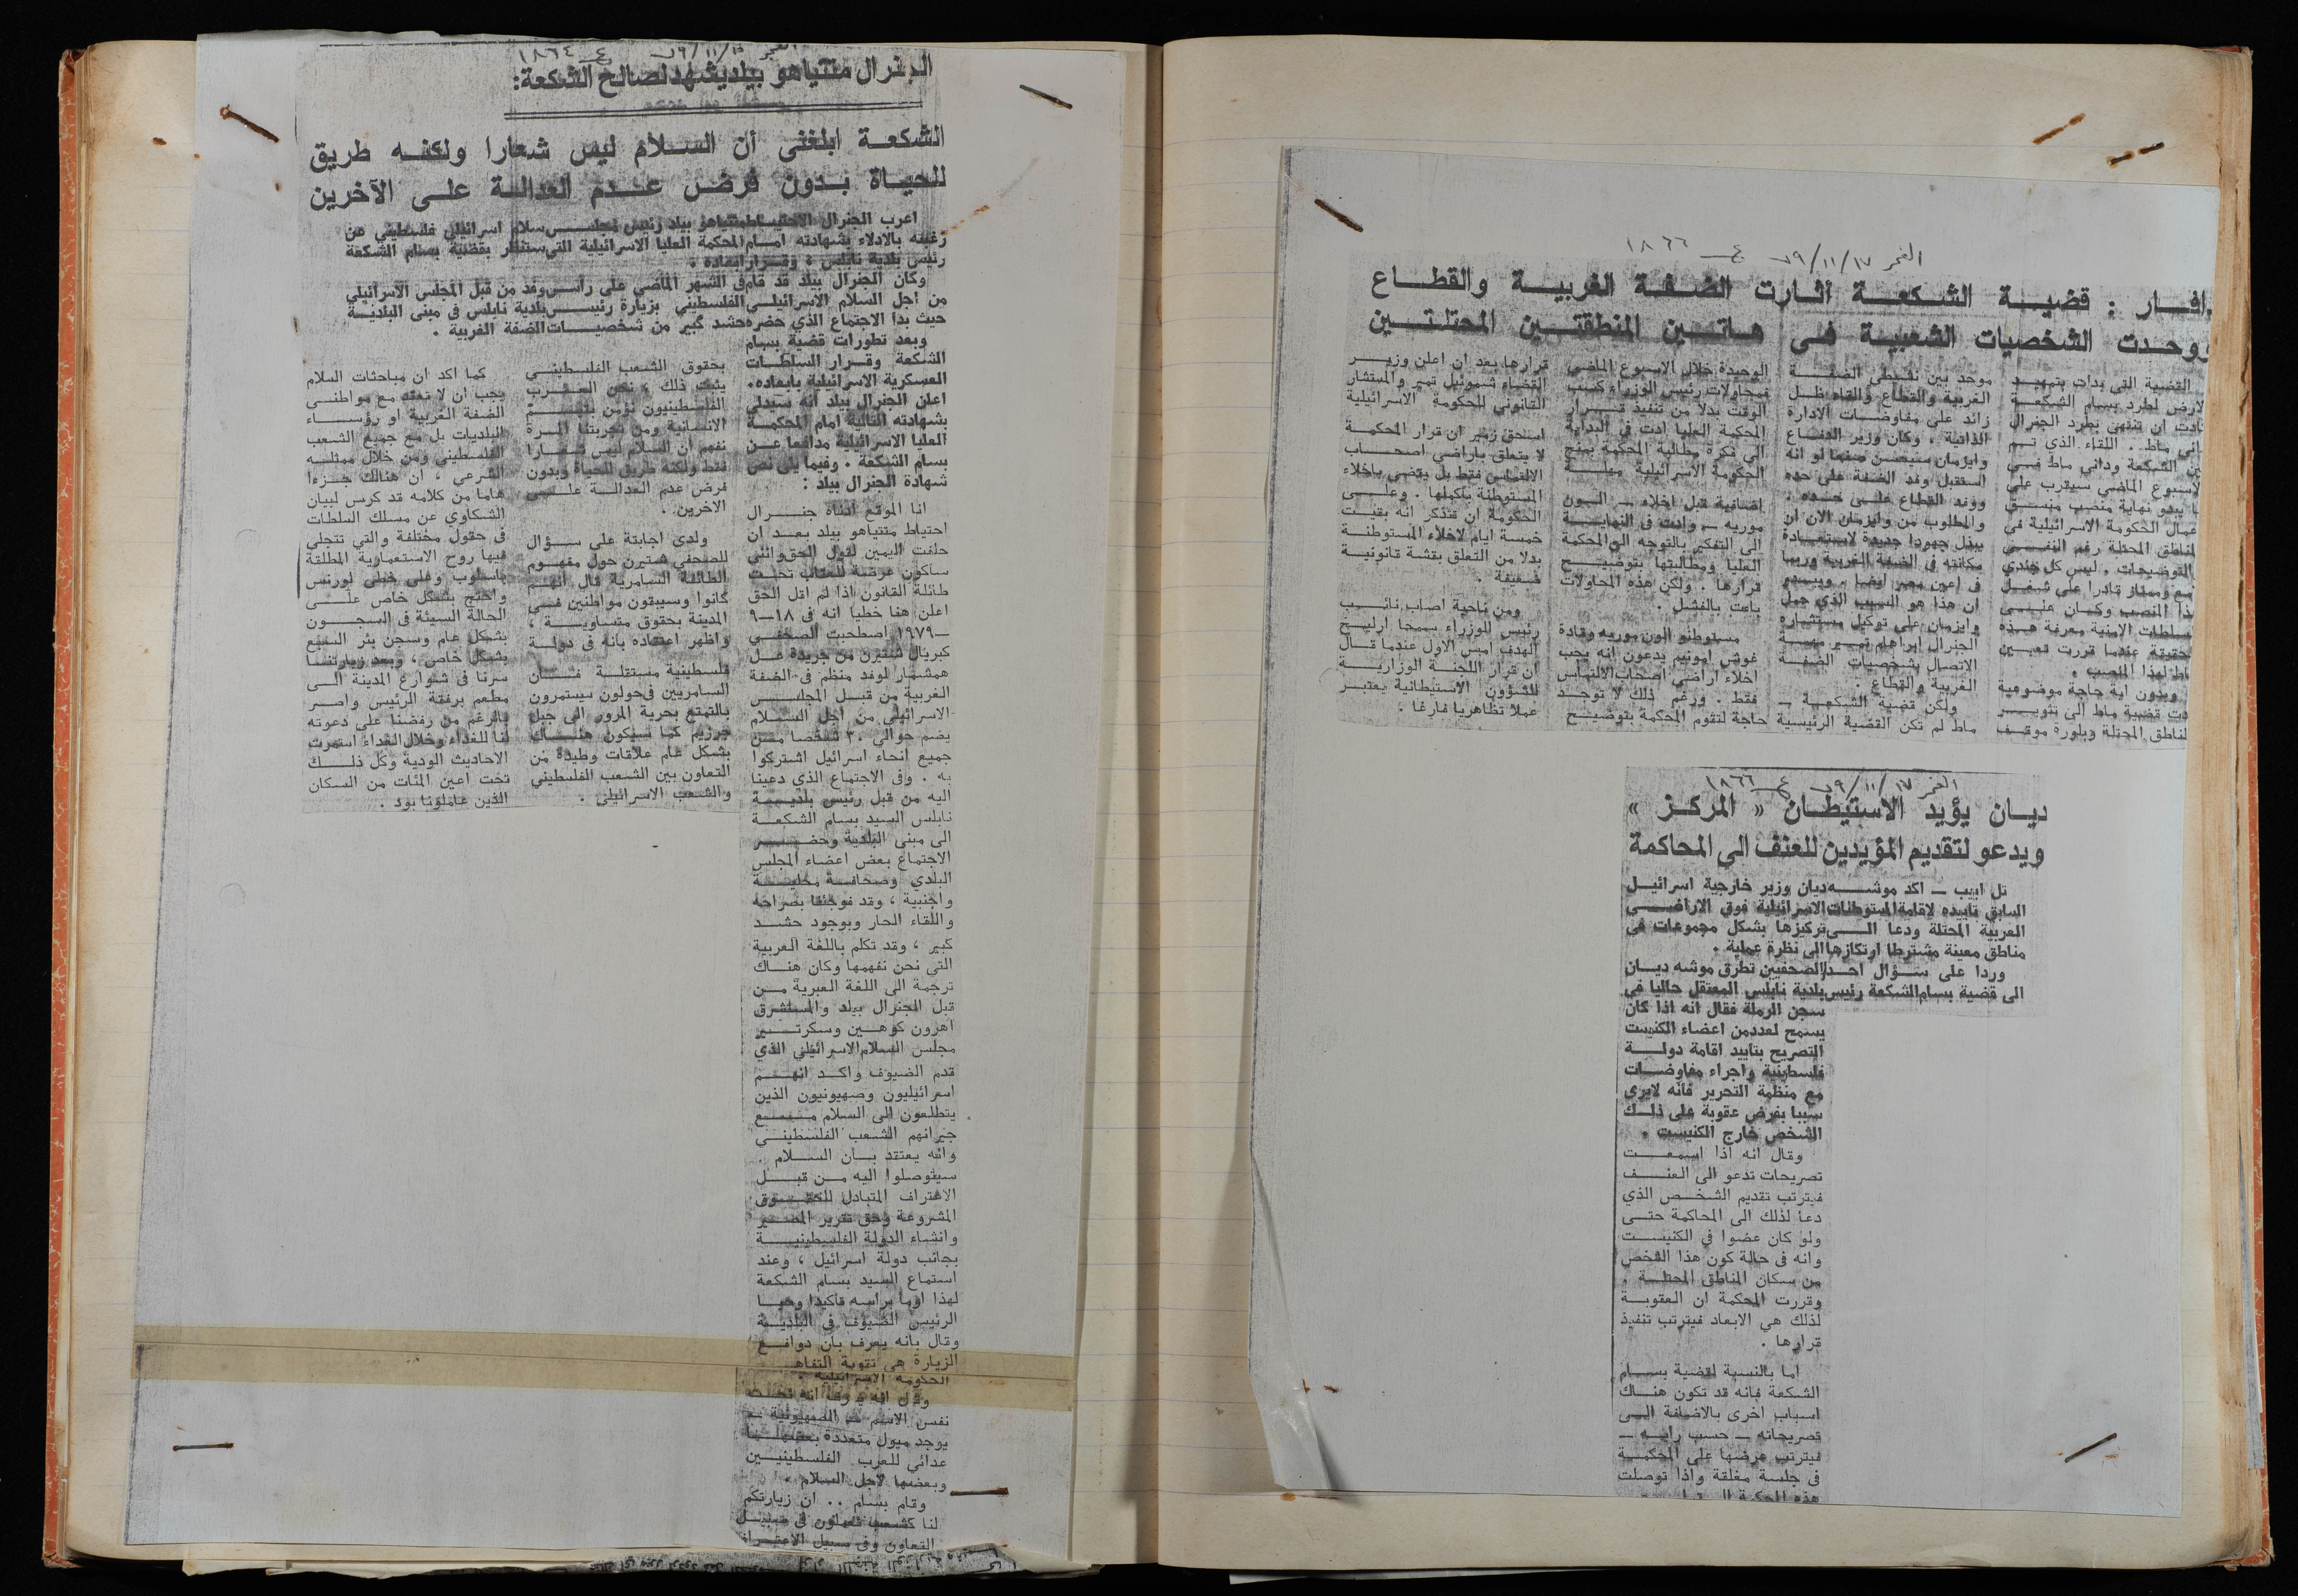 الفجر ١٥/١١/٧٩ ع ١٨٦٤
الجنرال متتياهو بيلد يشهد لصالح الشكعة:
الشكعة ابلغني أن السلام ليس شعارا ولكنه طريق
للحياة بدون فرض عدم العدالة على الآخرين
اعرب الجنرال الاحتياط متتياهو بيلد رئيس مجلس سلام اسرائيلي فلسطيني عن
رغبته بالادلاء بشهادته امام المحكمة العليا الاسرائيلية التي ستنظر بقضية بسام الشكعة
رئيس بلدية نابلس ، وقرار ابعاده .
وكان الجنرال بيلد قد قام في الشهر الماضي على رأس وفد من قبل المجلس الاسرائيلي
من اجل السلام الاسرائيلي الفلسطيني بزيارة رئيس بلدية نابلس في مبنى البلدية
حيث بدا الاجتماع الذي حضره حشد كبير من شخصيات الضفة الغربية .
وبعد تطورات قضية بسام
الشكعة وقرار السلطات
العسكرية الاسرائيلية بابعاده،
اعلن الجنرال بيلد انه سيدلي
بشهادته التالية امام المحكمة
العليا الاسرائيلية مدافعا عن
بسام الشكعة . وفيما يلي نص
شهادة الجنرال بيلد :
انا الموقع ادناه جنرال
احتياط متتياهو بيلد بعد ان
حلفت اليمين لقول الحق وانني
ساكون عرضة للعقاب تحت
طائلة القانون اذا لم اقل الحق
اعلن هنا خطيا انه في ١٨—٩
—١٩٧٩ اصطحبت الصحفي
كبريال شتيرن من جريدة عل
همشمار لوفد منظم في الضفة
الغربية من قبل المجلس
الاسرائيلي من اجل السلام
يضم حوالي ٣٠ شخصا من
جميع انحاء اسرائيل اشتركوا
به . وفي الاجتماع الذي دعينا
اليه من قبل رئيس بلدية
نابلس السيد بسام الشكعة
الى مبنى البلدية وحضر
الاجتماع بعض اعضاء المجلس
البلدي وصحافة محلية
واجنبية ، وقد فوجئنا بصراحة
واللقاء الحار وبوجود حشد
كبير ، وقد تكلم باللغة العربية
التي نحن نفهمها وكان هناك
ترجمة الى اللغة العبرية من
قبل الجنرال بيلد والمستشرق
اهرون كوهين وسكرتير
مجلس السلام الاسرائيلي الذي
قدم الضيوف واكد انهم
اسرائيليون وصهيونيون الذين
يتطلعون الى السلام مع
جيرانهم الشعب الفلسطيني
وانه يعتقد بان السلام
سيتوصلوا اليه من قبل
الاعتراف المتبادل للحقوق
المشروعة وحق تقرير المصير
وانشاء الدولة الفلسطينية
بجانب دولة اسرائيل ، وعند
استماع السيد بسام الشكعة
لهذا اوما براسه تاكيدا وحيا
الرئيس الضيوف في البلدية
وقال بانه يعرف بان دوافع
الزيارة هي تقوية التفاهم
الحكومة الاسرائيلية .
وقال انه يعرف انه تحت
نفس الاسم — الصهيونية —
يوجد ميول متعددة بعضها
عدائي للعرب الفلسطينيين
وبعضها لاجل السلام .
وقام بسام .. ان زيارتكم
لنا كشعب تعملون في سبيل
التعاون وفي سبيل الاعتراف
بحقوق الشعب الفلسطيني
يثبت ذلك ، نحن العرب
الفلسطينيون نؤمن
الانسانية ومن تجربتنا المرة
نفهم ان السلام ليس شعارا
فقط ولكنه طريق للحياة وبدون
فرض عدم العدالة على
الاخرين .
ولدى اجابته على سؤال
للصحفي شتيرن حول مفهوم
الطائفة السامرية قال انهم
كانوا وسيبقون مواطنين في
المدينة بحقوق متساوية ،
واظهر اعتقاده بانه في دولة
فلسطينية مستقلة فان
السامريين في حولون سيستمرون
بالتمتع بحرية المرور الى جبل
جرزيم كما سيكون هناك
بشكل عام علاقات وطيدة من
التعاون بين الشعب الفلسطيني
والشعب الاسرائيلي .
كما اكد ان مباحثات السلام
يجب ان لا تعقد مع مواطني
الضفة الغربية او رؤساء
البلديات بل مع جميع الشعب
الفلسطيني ومن خلال ممثله
الشرعي ، ان هنالك جزءا
هاما من كلامه قد كرس لبيان
الشكاوي عن مسلك السلطات
في حقول مختلفة والتي تتجلى
فيها روح الاستعمارية المطلقة
باسلوب وعلى خطى لورنس
واحتج بشكل خاص على
الحالة السيئة في السجون
بشكل عام وسجن بئر السبع
بشكل خاص ، وبعد زيارتنا
سرنا في شوارع المدينة الى
مطعم برفقة الرئيس واصر
بالرغم من رفضنا على دعوته
لنا للغداء وخلال الغداء استمرت
الاحاديث الودية وكل ذلك
تحت اعين المئات من السكان
الذين عاملونا بود .
الفجر ١٧/١١/٧٩ ع ١٨٦٦
دافار : قضية الشكعة أثارت الضفة الغربية والقطاع
ووحدت الشخصيات الشعبية في هاتين المنطقتين المحتلتين
القضية التي بدات بتمهيد
الارض لطرد بسام الشكعة
كادت ان تنتهي بطرد الجنرال
داني ماط. اللقاء الذي تم
بين الشكعة وداني ماط في
الاسبوع الماضي سيقرب على
ما يبدو نهاية منصب منسق
اعمال الحكومة الاسرائيلية في
المناطق المحتلة رغم النفي
والتوضيحات . ليس كل جندي
مع وممتاز قادرا على شغل
هذا المنصب وكان على
السلطات الامنية معرفة هذه
الحقيقة عندما قررت تعيين
ماط لهذا المنصب .
وبدون اية حاجة موضوعية
ادت قضية ماط الى تثوير
المناطق المحتلة وبلورة موقف
موحد بين نشيطي الضفة
الغربية والقطاع والقاء ظل
زائد على مفاوضات الادارة
الذاتية . وكان وزير الدفاع
وايزمان سيحسن صنعا لو انه
استقبل وفد الضفة على حده
ووفد القطاع على حده .
والمطلوب من وايزمان الان ان
يبذل جهودا جديدة لاستعادة
مكانته في الضفة الغربية وربما
في اعين مصر ايضا . ويبدو
ان هذا هو السبب الذي حمل
وايزمان على توكيل مستشاره
الجنرال ابراهام تمير مهمة
الاتصال بشخصيات الضفة
الغربية والقطاع .
ولكن قضية الشكعة —
ماط لم تكن القضية الرئيسية
الوحيدة خلال الاسبوع الماضي
فمحاولات رئيس الوزراء كسب
الوقت بدلا من تنفيذ قرار
المحكمة العليا ادت في البداية
الى فكرة مطالبة المحكمة بمنح
الحكومة الاسرائيلية مهلة
اضافية قبل اخلاء — الون
موريه — وادت في النهاية
الى التفكير بالتوجه الى المحكمة
العليا ومطالبتها بتوضيح
قرارها . ولكن هذه المحاولات
باءت بالفشل .
مستوطنو الون موريه وقادة
غوش امونيم يدعون انه يجب
اخلاء اراضي اصحاب الالتماس
فقط . ورغم ذلك لا توجد
حاجة لتقوم المحكمة بتوضيح
قرارها بعد ان اعلن وزير
القضاء شموئيل تمير والمستشار
القانوني للحكومة الاسرائيلية
اسحق زمير ان قرار المحكمة
لا يتعلق باراضي اصحاب
الالتماس فقط بل يقضي باخلاء
المستوطنة باكملها . وعلى
الحكومة ان تتذكر انه بقيت
خمسة ايام لاخلاء المستوطنة
بدلا من التعلق بقشة قانونية
ضعيفة .
ومن ناحية اصاب نائب
رئيس الوزراء سمحا ارليخ
الهدف امس الاول عندما قال
ان قرار اللجنة الوزارية
للشؤون الاستيطانية يعتبر
عملا تظاهريا فارغا .
الفجر ١٧/١١/٧٩ ع ١٨٦٦
ديان يؤيد الاستيطان « المركز »
ويدعو لتقديم المؤيدين للعنف الى المحاكمة
تل ابيب — اكد موشه ديان وزير خارجية اسرائيل
السابق تاييده لاقامة المستوطنات الاسرائيلية فوق الاراضي
العربية المحتلة ودعا الى تركيزها بشكل مجموعات في
مناطق معينة مشترطا ارتكازها الى نظرة عملية .
وردا على سؤال احد الصحفيين تطرق موشه ديان
الى قضية بسام الشكعة رئيس بلدية نابلس المعتقل حاليا في
سجن الرملة فقال انه اذا كان
يسمح لعدد من اعضاء الكنيست
التصريح بتاييد اقامة دولة
فلسطينية واجراء مفاوضات
مع منظمة التحرير فانه لا يرى
سببا بفرض عقوبة على ذلك
الشخص خارج الكنيست .
وقال انه اذا اسمعت
تصريحات تدعو الى العنف
فيترتب تقديم الشخص الذي
دعا لذلك الى المحاكمة حتى
ولو كان عضوا في الكنيست
وانه في حالة كون هذا الشخص
من سكان المناطق المحتلة .
وقررت المحكمة ان العقوبة
لذلك هي الابعاد فيترتب تنفيذ
قرارها .
اما بالنسبة لقضية بسام
الشكعة فانه قد تكون هناك
اسباب اخرى بالاضافة الى
تصريحاته — حسب رايه —
فيترتب عرضها على المحكمة
في جلسة مغلقة واذا توصلت
هذه المحكمة الى